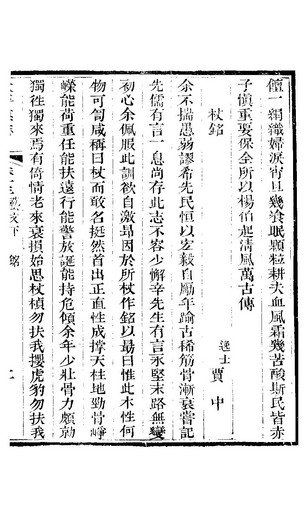 儃一獨織婦淚宵旦幾飡眠顆粒耕夫血風霜幾苦酸斯民皆赤
子慎重要保全所以楊伯起淸風萬古傳
杖銘
逸士賈中
余不揣愚弱謬希先民恒以宏毅自勵年踰古稀筋骨漸衰嘗記
先儒有言一息尚存此志不容少懈辛先生有言永堅末路無變
初心余佩服此訓欲自激昻因於所杖作銘以勗曰惟此木性何
物可匹咸稱曰杖而敢名挺然首出正直性成撑天柱地勁骨崢
嶸能荷重任能扶遠行能警放誕能持危傾余年少壯骨力頗勍
獨徃獨來焉有倚情老來衰損始思杖楨勿扶我攖虎豹勿扶我
銘